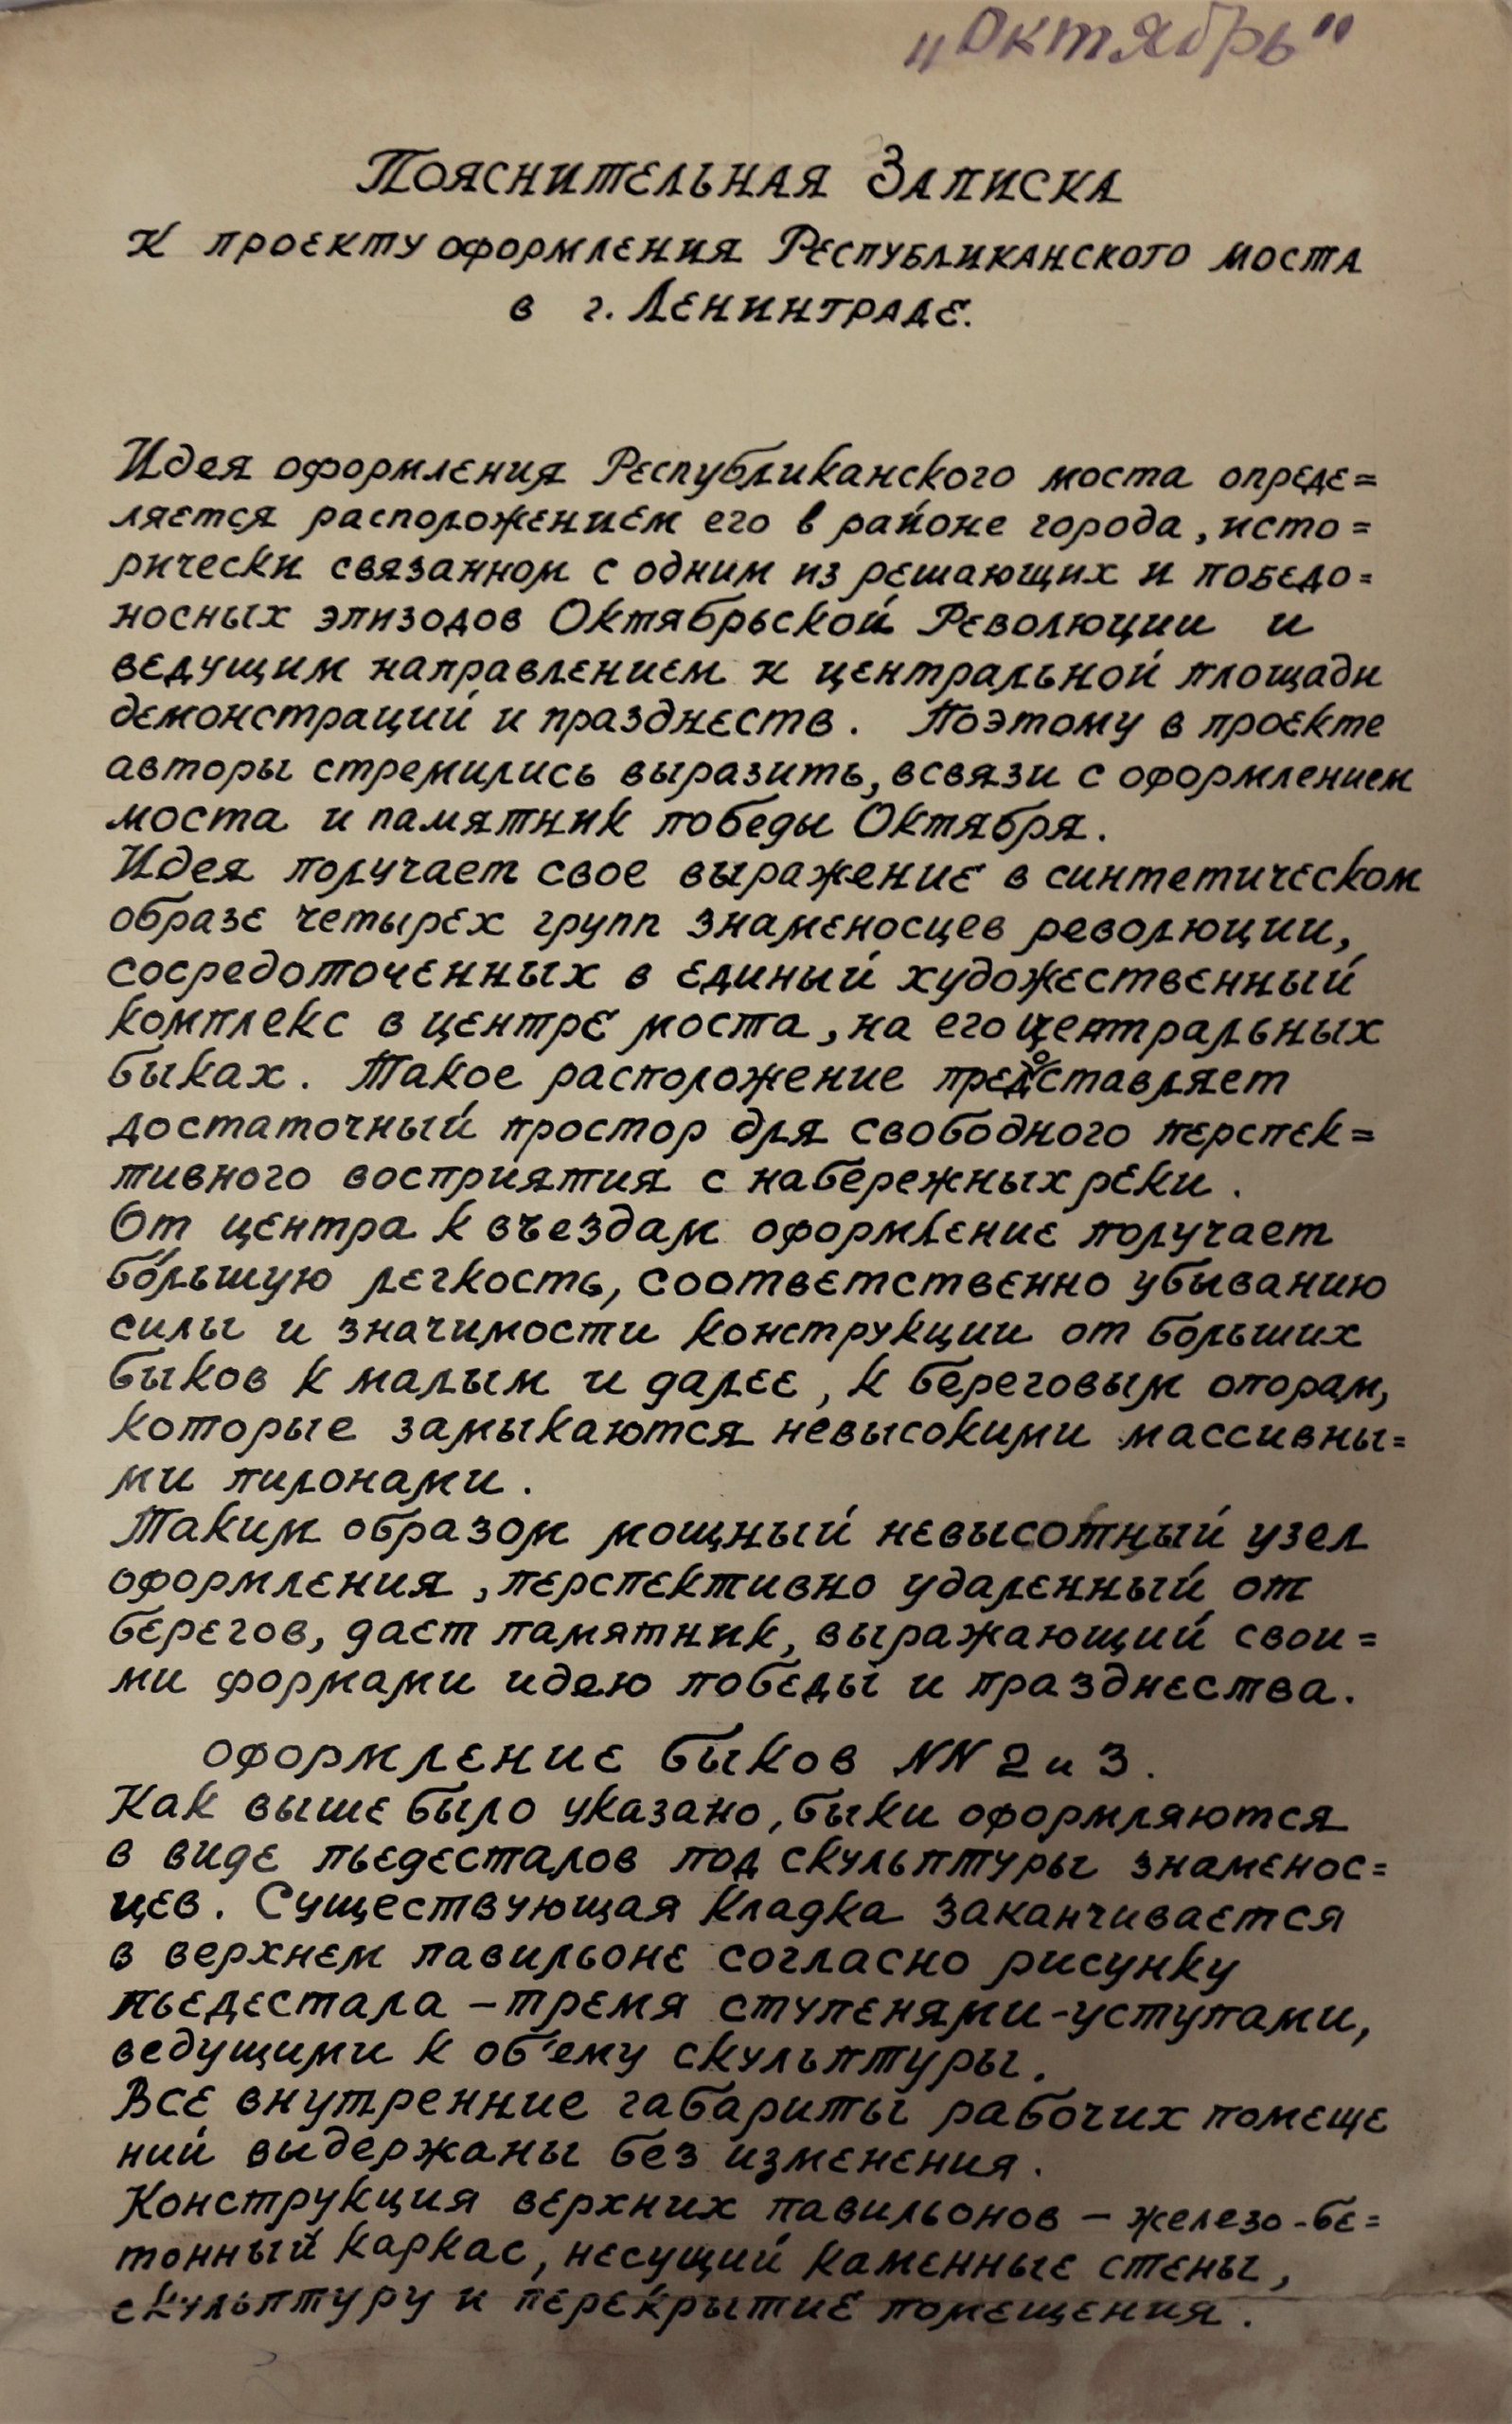 „Октябрь"
Пояснительная Записка
к проекту оформления Республиканского моста
в г. Ленинграде.
Идея оформления Республиканского моста опреде=
ляется расположением его в районе города, исто=
рически связанном с одним из решающих и победо=
носных эпизодов Октябрьской Революции и
ведущим направлением к центральной площади
демонстраций и празднеств. Поэтому в проекте
авторы стремились выразить, всвязи с оформлением
моста и памятник победы Октября.
Идея получает свое выражение в синтетическом
образе четырех групп знаменосцев революции,
сосредоточенных в единый художественный
комплекс в центре моста, на его центральных
быках. Такое расположение предоставляет
достаточный простор для свободного перспек=
тивного восприятия с набережных реки.
От центра к въездам оформление получает
бо́льшую легкость, соответственно убыванию
силы и значимости конструкции от больших
быков к малым и далее, к береговым опорам,
которые замыкаются невысокими массивны=
ми пилонами.
Таким образом мощный невысотный узел
оформления, перспективно удаленный от
берегов, дает памятник, выражающий свои=
ми формами идею победы и празднества.
оформление быков NN 2 и 3.
Как выше было указано, быки оформляются
в виде пьедесталов под скульптуры знаменос=
цев. Существующая кладка заканчивается
в верхнем павильоне согласно рисунку
пьедестала – тремя ступенями-уступами,
ведущими к об'ему скульптуры.
Все внутренние габариты рабочих помеще
ний выдержаны без изменения.
Конструкция верхних павильонов – железо-бе=
тонный каркас, несущий каменные стены,
скульптуру и перекрытие помещения.